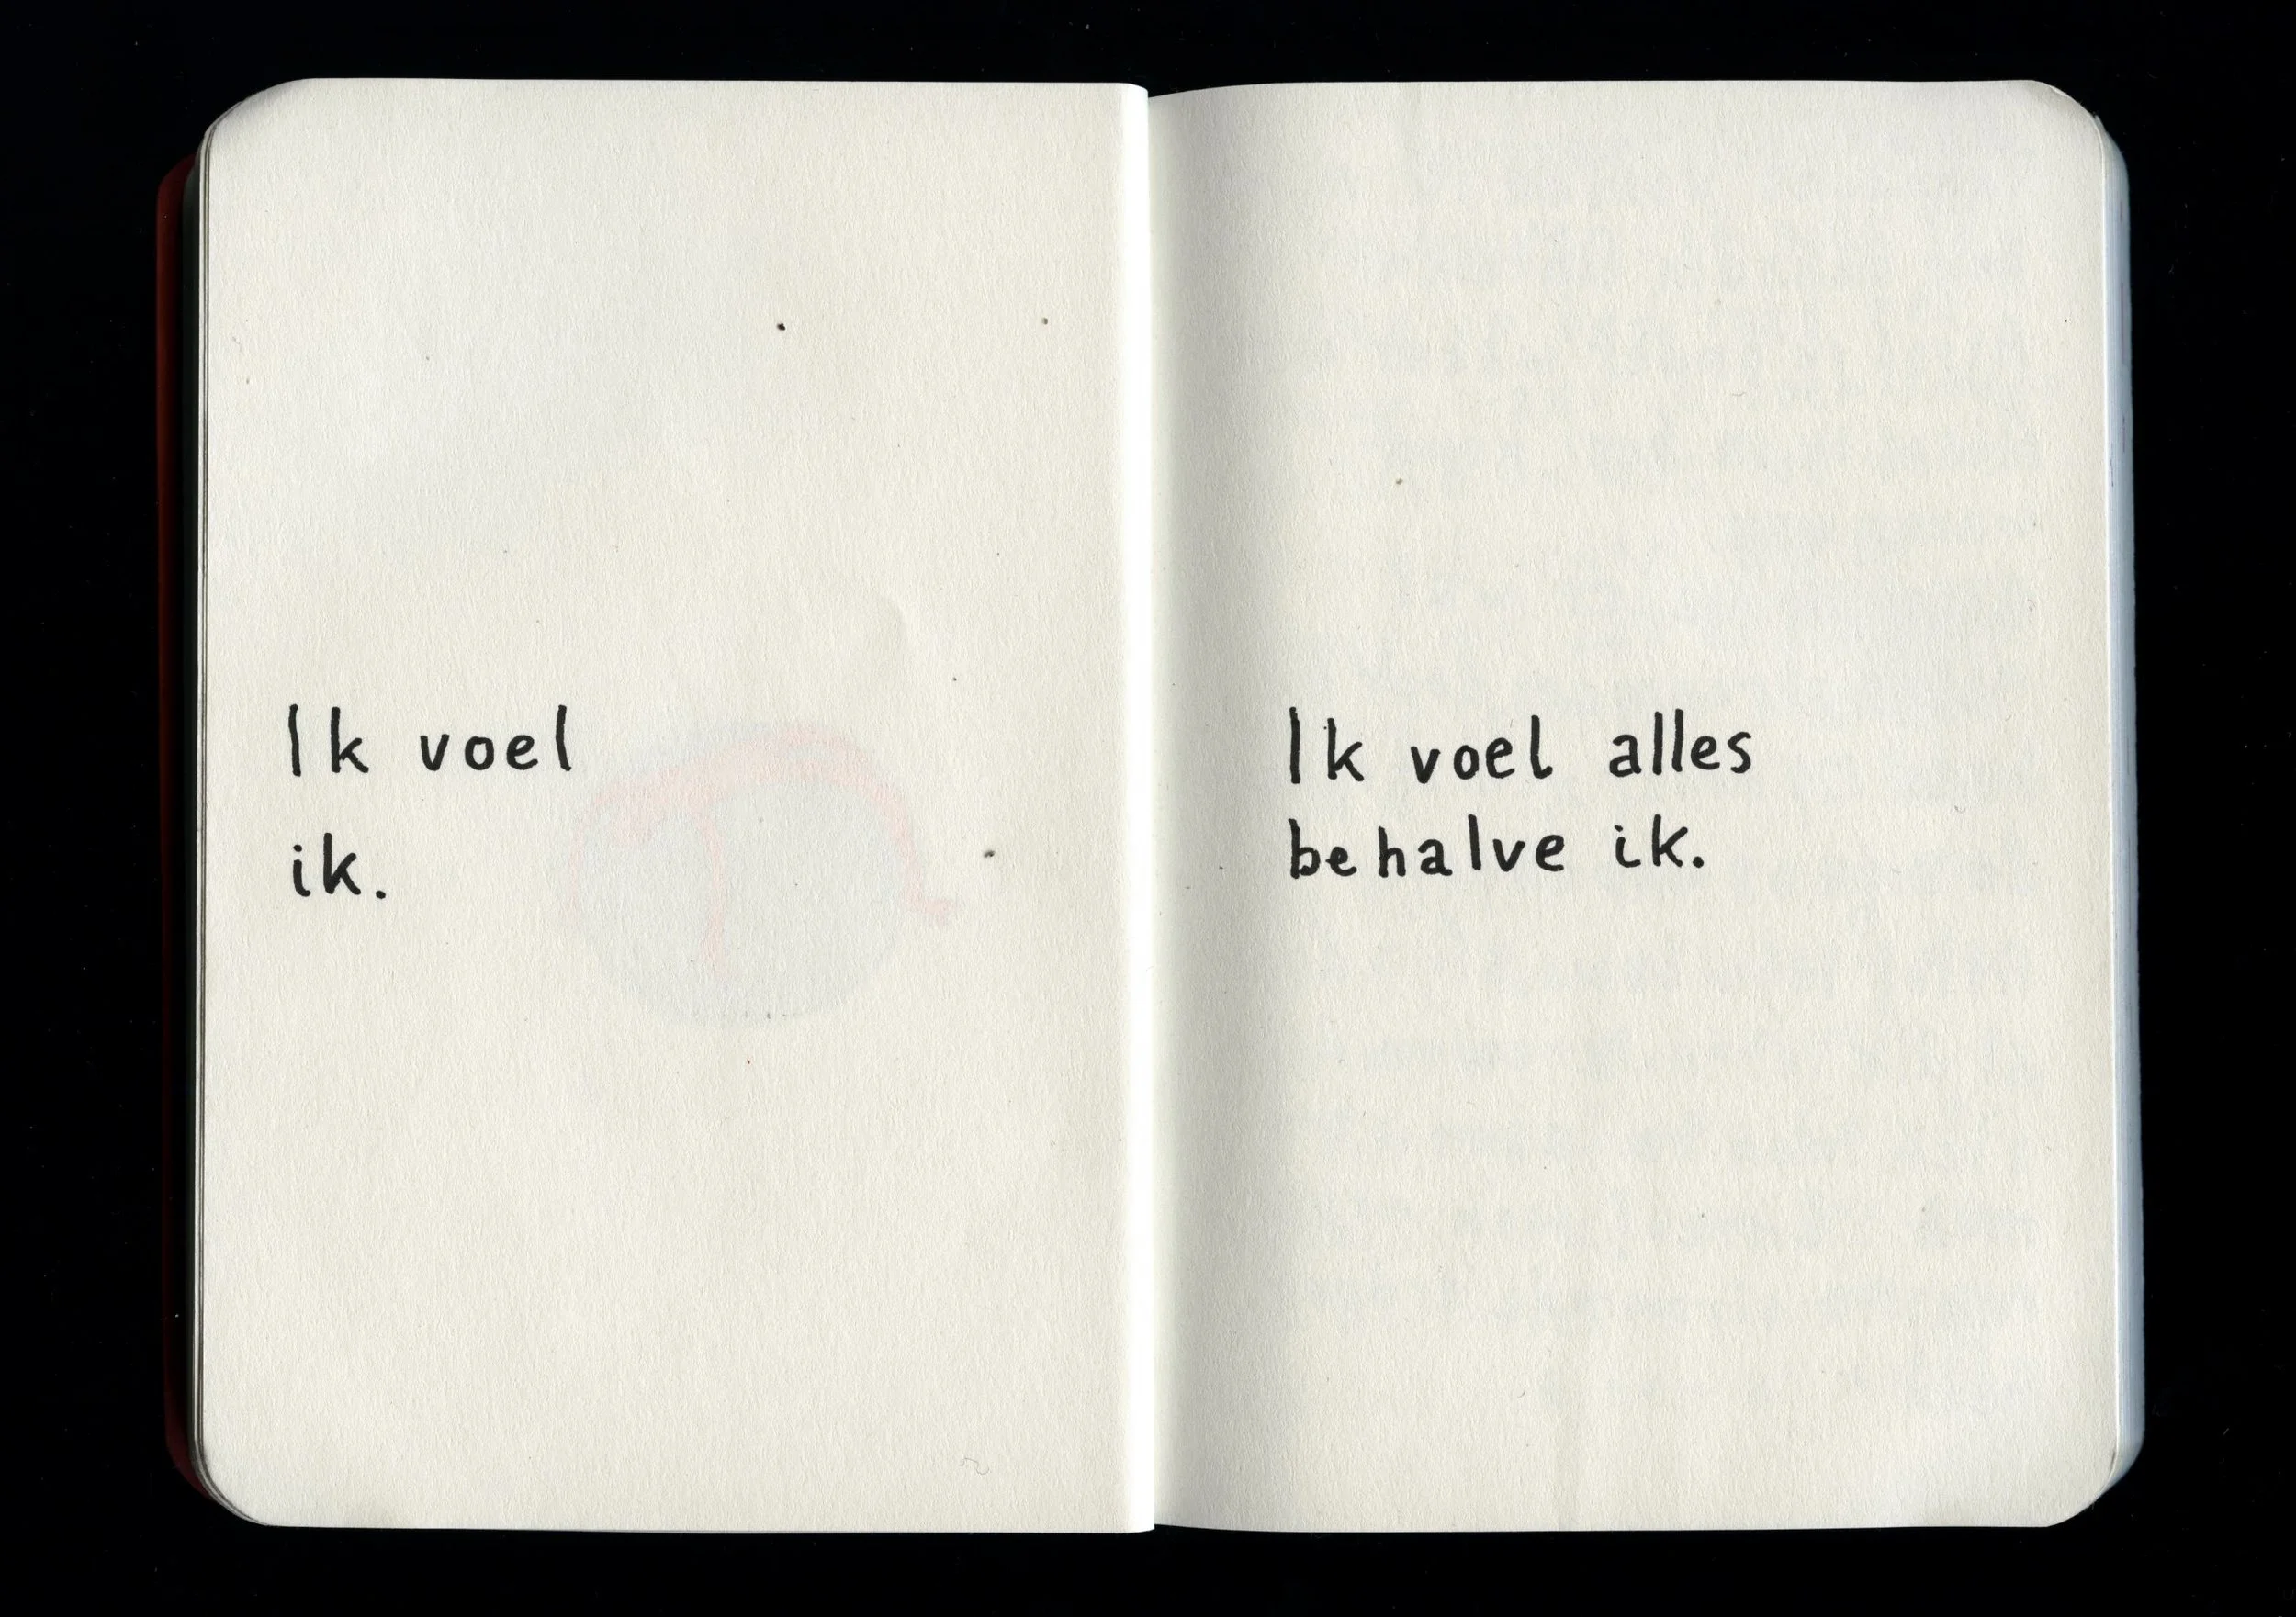 Ik voel
ik.
Ik voel alles
behalve ik.